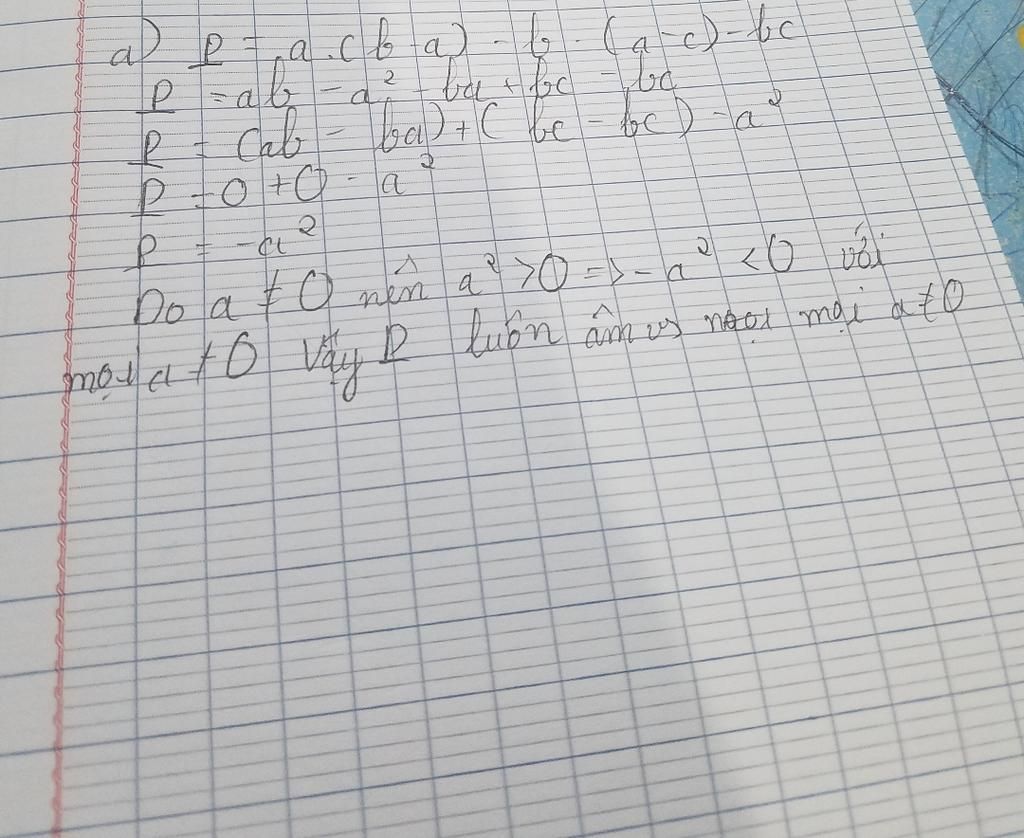 a) P = a.(b-a) - b - (a-c) - bc
P = ab - a² - ba + bc - bc
P = (ab - ba) + (bc - bc) - a²
P = 0 + 0 - a²
P = -a²
Do a ≠ 0 nên a² > 0 => - a² < 0 với
mọi a ≠ 0 Vậy P luôn âm mọi a ≠ 0